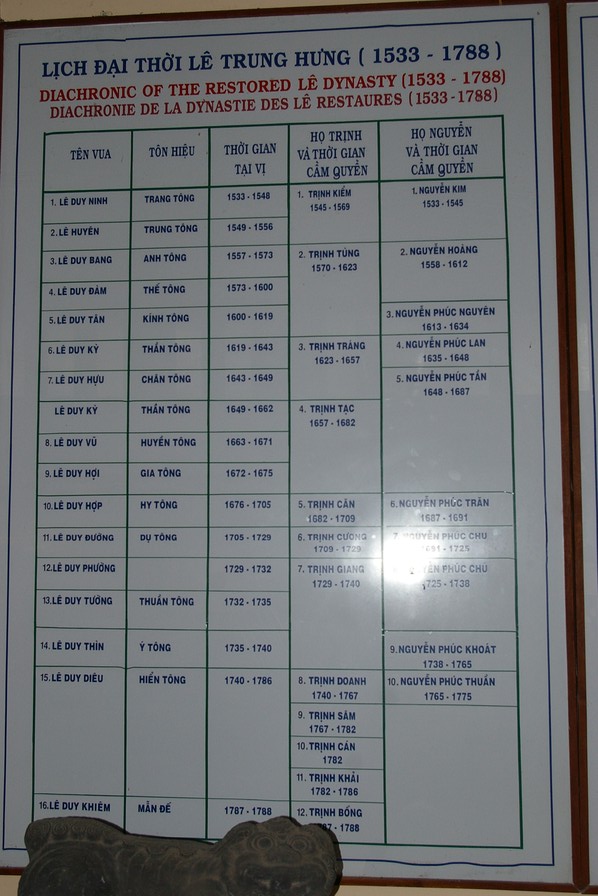 LỊCH ĐẠI THỜI LÊ TRUNG HƯNG ( 1533 - 1788 )
DIACHRONIC OF THE RESTORED LÊ DYNASTY (1533 - 1788)
DIACHRONIE DE LA DYNASTIE DES LÊ RESTAURES (1533-1788)
TÊN VUA
TÔN HIỆU
THỜI GIAN
TẠI VỊ
HỌ TRỊNH
VÀ THỜI GIAN
CẦM QUYỀN
HỌ NGUYỄN
VÀ THỜI GIAN
CẦM QUYỀN
1. LÊ DUY NINH TRANG TÔNG 1533 - 1548
2. LÊ HUYÊN TRUNG TÔNG 1549 - 1556
3. LÊ DUY BANG ANH TÔNG 1557 - 1573
4. LÊ DUY ĐÀM THẾ TÔNG 1573 - 1600
5. LÊ DUY TÂN KÍNH TÔNG 1600 - 1619
6. LÊ DUY KỲ THẦN TÔNG 1619 - 1643
7. LÊ DUY HỰU CHÂN TÔNG 1643 - 1649
LÊ DUY KỲ THẦN TÔNG 1649 - 1662
8. LÊ DUY VŨ HUYỀN TÔNG 1663 - 1671
9. LÊ DUY HỢI GIA TÔNG 1672 - 1675
10. LÊ DUY HỢP HY TÔNG 1676 - 1705
11. LÊ DUY ĐƯỜNG DỤ TÔNG 1705 - 1729
12. LÊ DUY PHƯỜNG 1729 - 1732
13. LÊ DUY TƯỜNG THUẦN TÔNG 1732 - 1735
14. LÊ DUY THÌN Ý TÔNG 1735 - 1740
15. LÊ DUY DIÊU HIỂN TÔNG 1740 - 1786
16. LÊ DUY KHIÊM MẪN ĐẾ 1787 - 1788
1. TRỊNH KIỂM
1545 - 1569
2. TRỊNH TÙNG
1570 - 1623
3. TRỊNH TRÁNG
1623 - 1657
4. TRỊNH TẠC
1657 - 1682
5. TRỊNH CĂN
1682 - 1709
6. TRỊNH CƯƠNG
1709 - 1729
7. TRỊNH GIANG
1729 - 1740
8. TRỊNH DOANH
1740 - 1767
9. TRỊNH SÂM
1767 - 1782
10. TRỊNH CÁN
1782
11. TRỊNH KHẢI
1782 - 1786
12. TRỊNH BỒNG
1788
1. NGUYỄN KIM
1533 - 1545
2. NGUYỄN HOÀNG
1558 - 1612
3. NGUYỄN PHÚC NGUYÊN
1613 - 1634
4. NGUYỄN PHÚC LAN
1635 - 1648
5. NGUYỄN PHÚC TẦN
1648 - 1687
6. NGUYỄN PHÚC TRĂN
1687 - 1691
7. NGUYỄN PHÚC CHU
1691 - 1725
NGUYỄN PHÚC CHU
1725 - 1738
9. NGUYỄN PHÚC KHOÁT
1738 - 1765
10. NGUYỄN PHÚC THUẦN
1765 - 1775